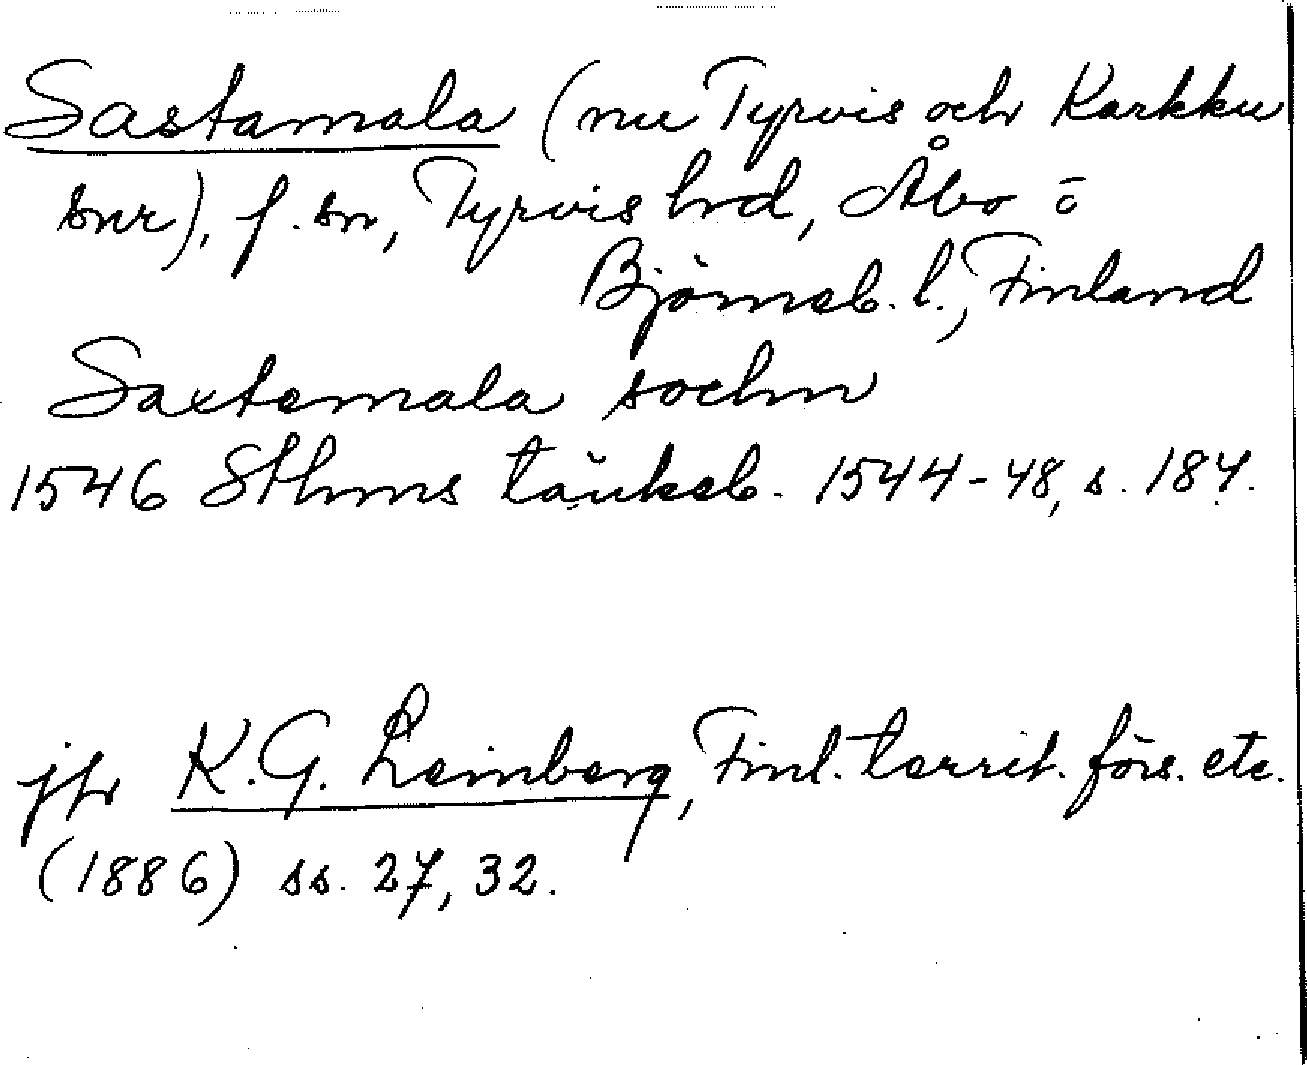 Sastamala (nu Tyrvis och Karkku
snr), f. sn, Tyrvis hrd, Åbo o
Björneb. l., Finland
Saxtamala sochn
1546 Sthms tänkeb. 1544-48, s. 184.
jfr K.G. Leinberg, Finl. territ. förs. etc.
(1886) ss. 27, 32.